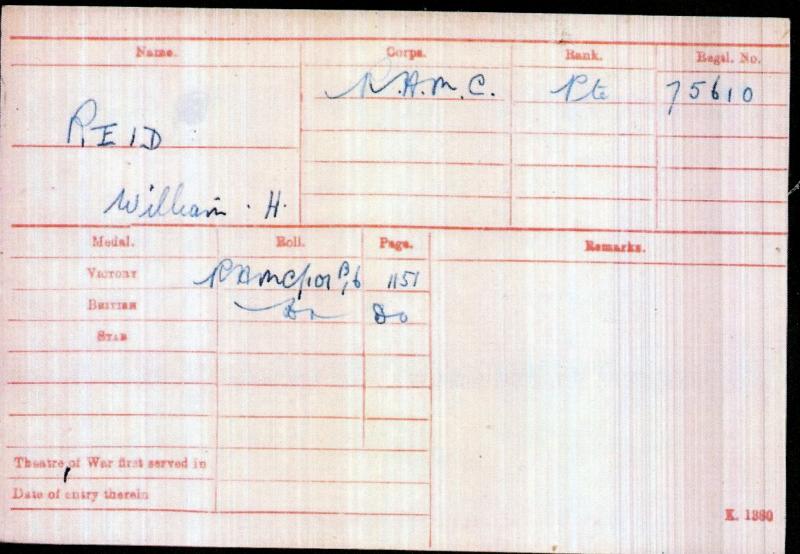 Name. Corps. Rank. Regtl. No.
R.A.M.C. Pte 75610
REID
William . H.
Medal. Roll. Page. Remarks.
VICTORY RAMC/101 B16 1151
BRITISH Do Do
STAR
Theatre of War first served in
Date of entry therein
K. 1380